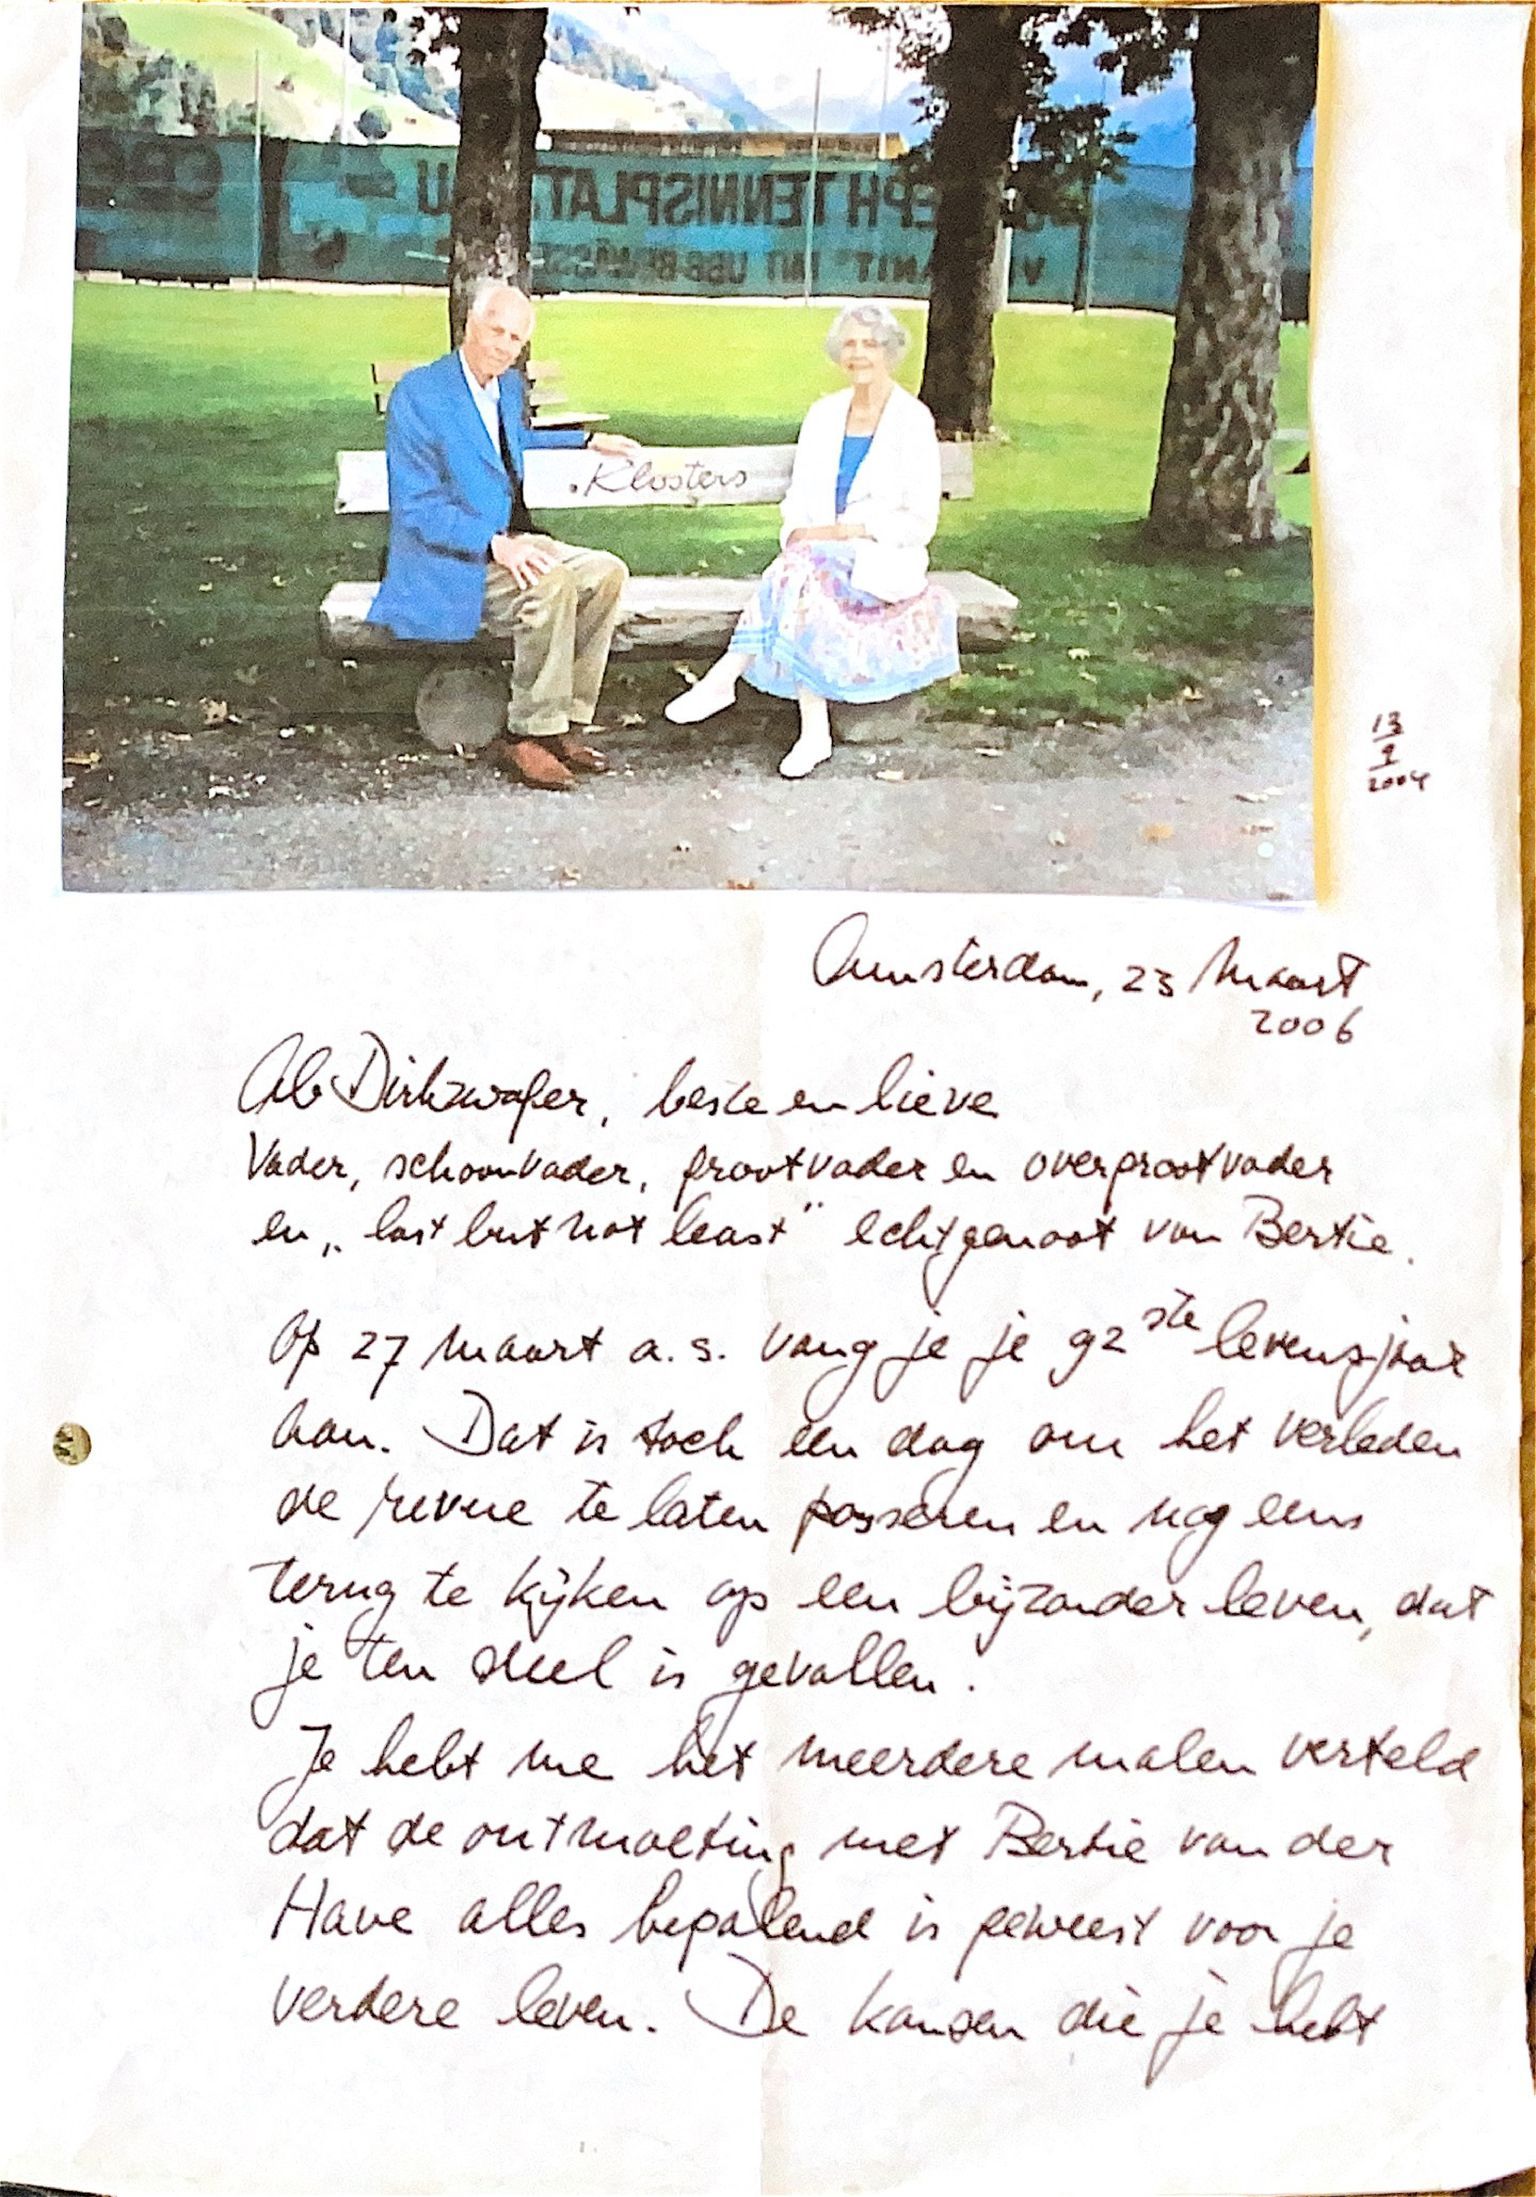 U
EPH TENNISPLATZ
MIT USG-BEWÄSS
Klosters
13
9
2004
Amsterdam, 23 Maart
2006
Ab Dirkzwager, beste en lieve
Vader, schoonvader, grootvader en overgrootvader
en „last but not least" echtgenoot van Bertie.
Op 27 Maart a.s. vang je je 92ste levensjaar
aan. Dat is toch een dag om het verleden
de revue te laten passeren en nog eens
terug te kijken op een bijzonder leven, dat
je ten deel is gevallen.
Je hebt me het meerdere malen verteld
dat de ontmoeting met Bertie van der
Have alles bepalend is geweest voor je
verdere leven. De kansen die je hebt